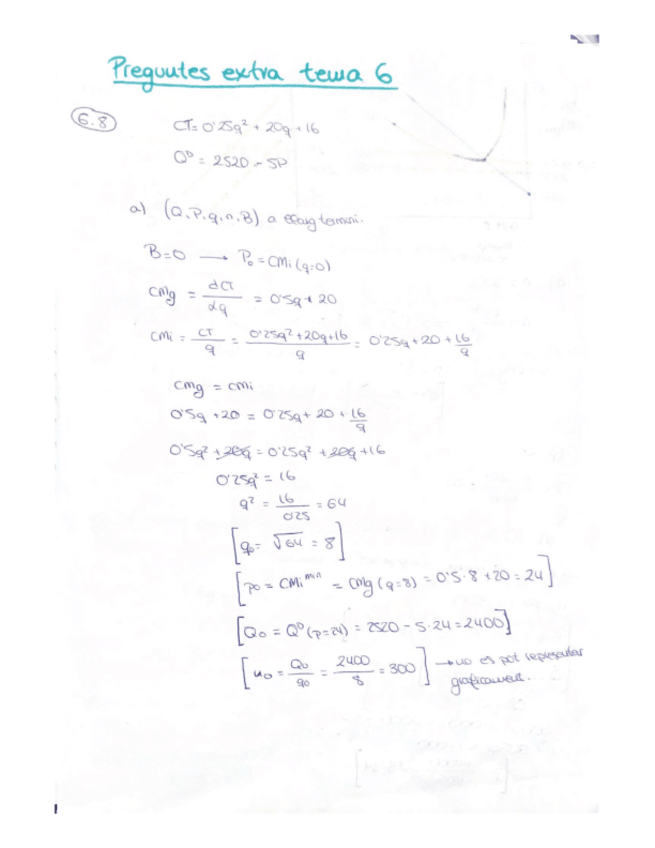 Preguntes extra tema 6
6.8
CT = 0'25q² + 20q + 16
Qᴰ = 2520 - 5P
a) (Q, P, q, n, B) a llarg termini.
B=0 → P₀ = CMi (q=0)
CMg = dCT/dq = 0'5q + 20
CMi = CT/q = 0'25q²+20q+16/q = 0'25q + 20 + 16/q
CMg = CMi
0'5q + 20 = 0'25q + 20 + 16/q
0'5q² + 20q = 0'25q² + 20q + 16
0'25q² = 16
q² = 16/0'25 = 64
[q₀ = √64 = 8]
[P₀ = CMiᵐⁱⁿ = CMg (q=8) = 0'5·8 + 20 = 24]
[Q₀ = Qᴰ (P=24) = 2520 - 5·24 = 2400]
[n₀ = Q₀/q₀ = 2400/8 = 300] → no es pot representar
graficament.